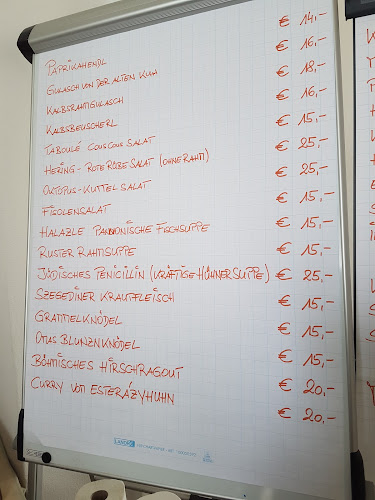 PAPRIKAHENDL € 14,-
GULASCH VON DER ALTEN KUH € 16,-
KALBSRAHMGULASCH € 18,-
KALBSBEUSCHERL € 16,-
TABOULÉ COUSCOUS SALAT € 15,-
HERING-ROTE RÜBE SALAT (OHNE RAHM) € 25,-
OKTOPUS-KUTTEL SALAT € 25,-
FISOLENSALAT € 15,-
HALAZLE PANNONISCHE FISCHSUPPE € 15,-
RUSTER RAHMSUPPE € 15,-
JÜDISCHES PENICILLIN (KRÄFTIGE HÜHNERSUPPE) € 25,-
SZEGEDINER KRAUTFLEISCH € 15,-
GRAMMELKNÖDEL € 15,-
OMAS BLUNZNKNÖDEL € 15,-
BÖHMISCHES HIRSCHRAGOUT € 20,-
CURRY VOM ESTERÁZYHUHN € 20,-